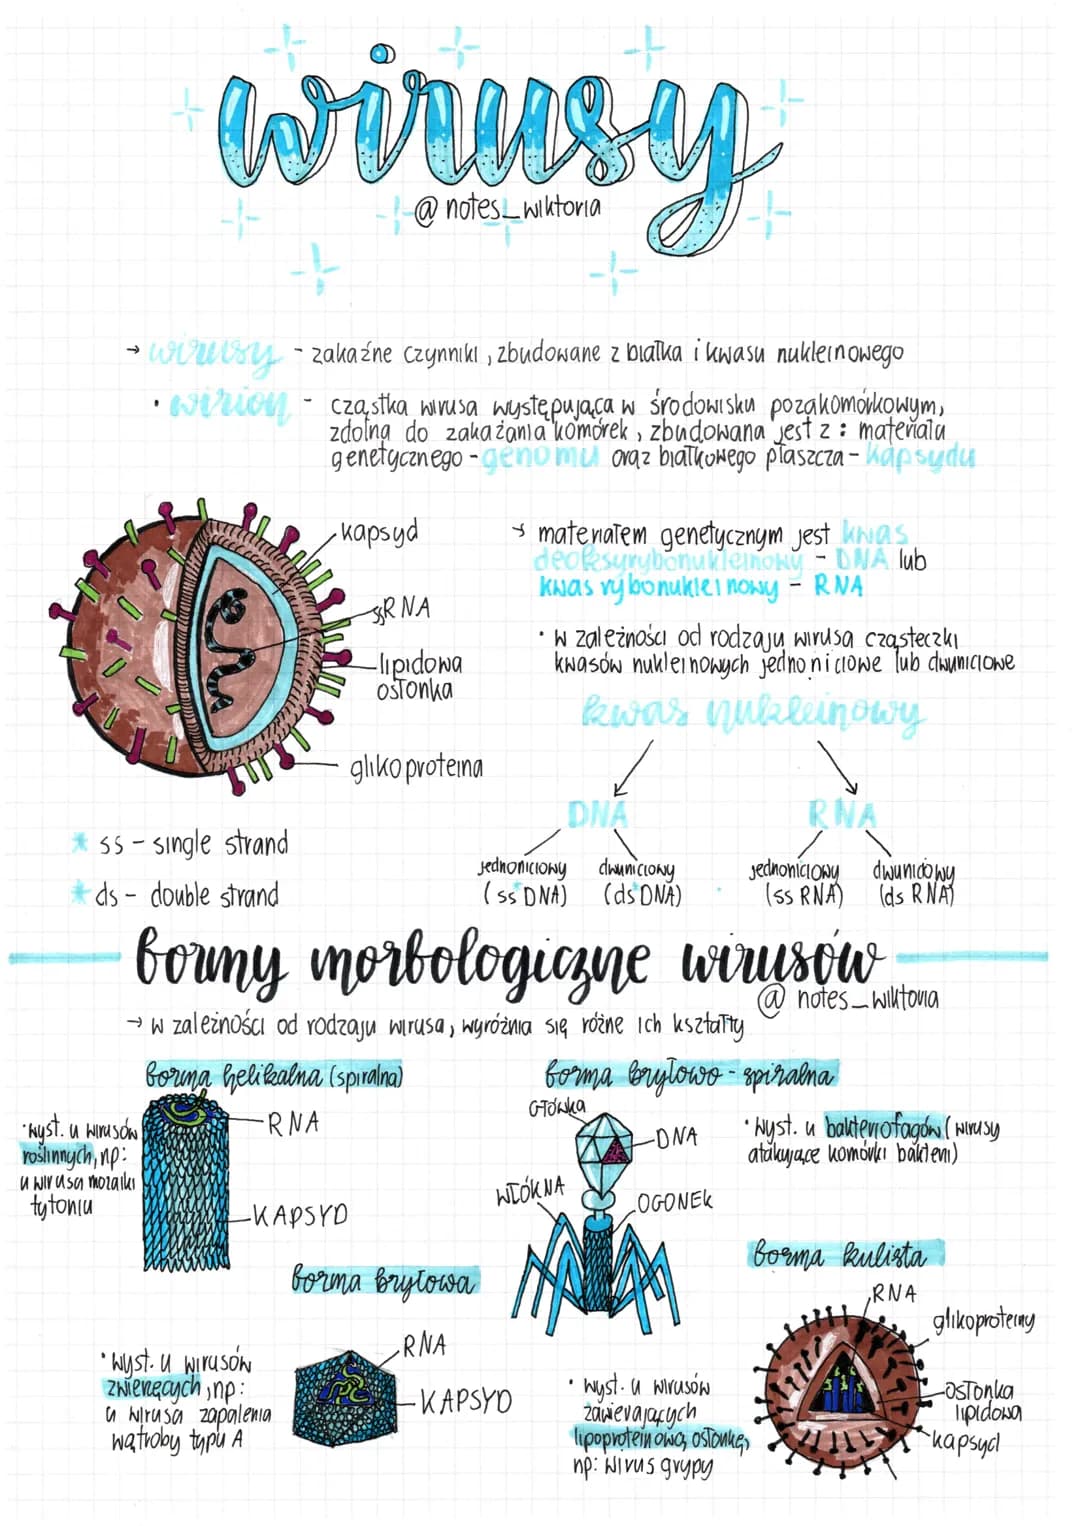 wirusy
@ notes_wiktoria
→ wirusy - zakaźne czynniki, zbudowane z białka i kwasu nukleinowego
• wirion - cząstka wirusa występująca w środowisku pozakomórkowym,
zdolna do zakażania komórek, zbudowana jest z: materiału
genetycznego - genomu oraz białkowego płaszcza - kapsydu
kapsyd
ssRNA
lipidowa
osłonka
glikoproteina
→ materiałem genetycznym jest kwas
deoksyrybonukleinowy - DNA lub
kwas rybonukleinowy - RNA
• w zależności od rodzaju wirusa cząsteczki
kwasów nukleinowych jednoniciowe lub dwuniciowe
kwas nukleinowy
DNA
RNA
jednoniciowy
(ssDNA)
dwuniciowy
(dsDNA)
jednoniciowy
(ss RNA)
dwuniciowy
(ds RNA)
* ss - single strand
* ds - double strand
formy morfologiczne wirusów
@ notes_wiktoria
→ w zależności od rodzaju wirusa, wyróżnia się różne ich kształty
forma helikalna (spiralna)
• wyst. u wirusów
roślinnych, np:
u wirusa mozaiki
tytoniu
RNA
KAPSYD
forma bryłowo-spiralna
GŁÓWKA
DNA
WŁÓKNA
OGONEK
• wyst. u bakteriofagów (wirusy
atakujące komórki bakterii)
forma bryłowa
• wyst. u wirusów
zwierzęcych, np:
u wirusa zapalenia
wątroby typu A
RNA
KAPSYD
forma kulista
• wyst. u wirusów
zawierających
lipoproteinową osłonkę,
np: wirus grypy
RNA
glikoproteiny
osłonka
lipidowa
kapsyd